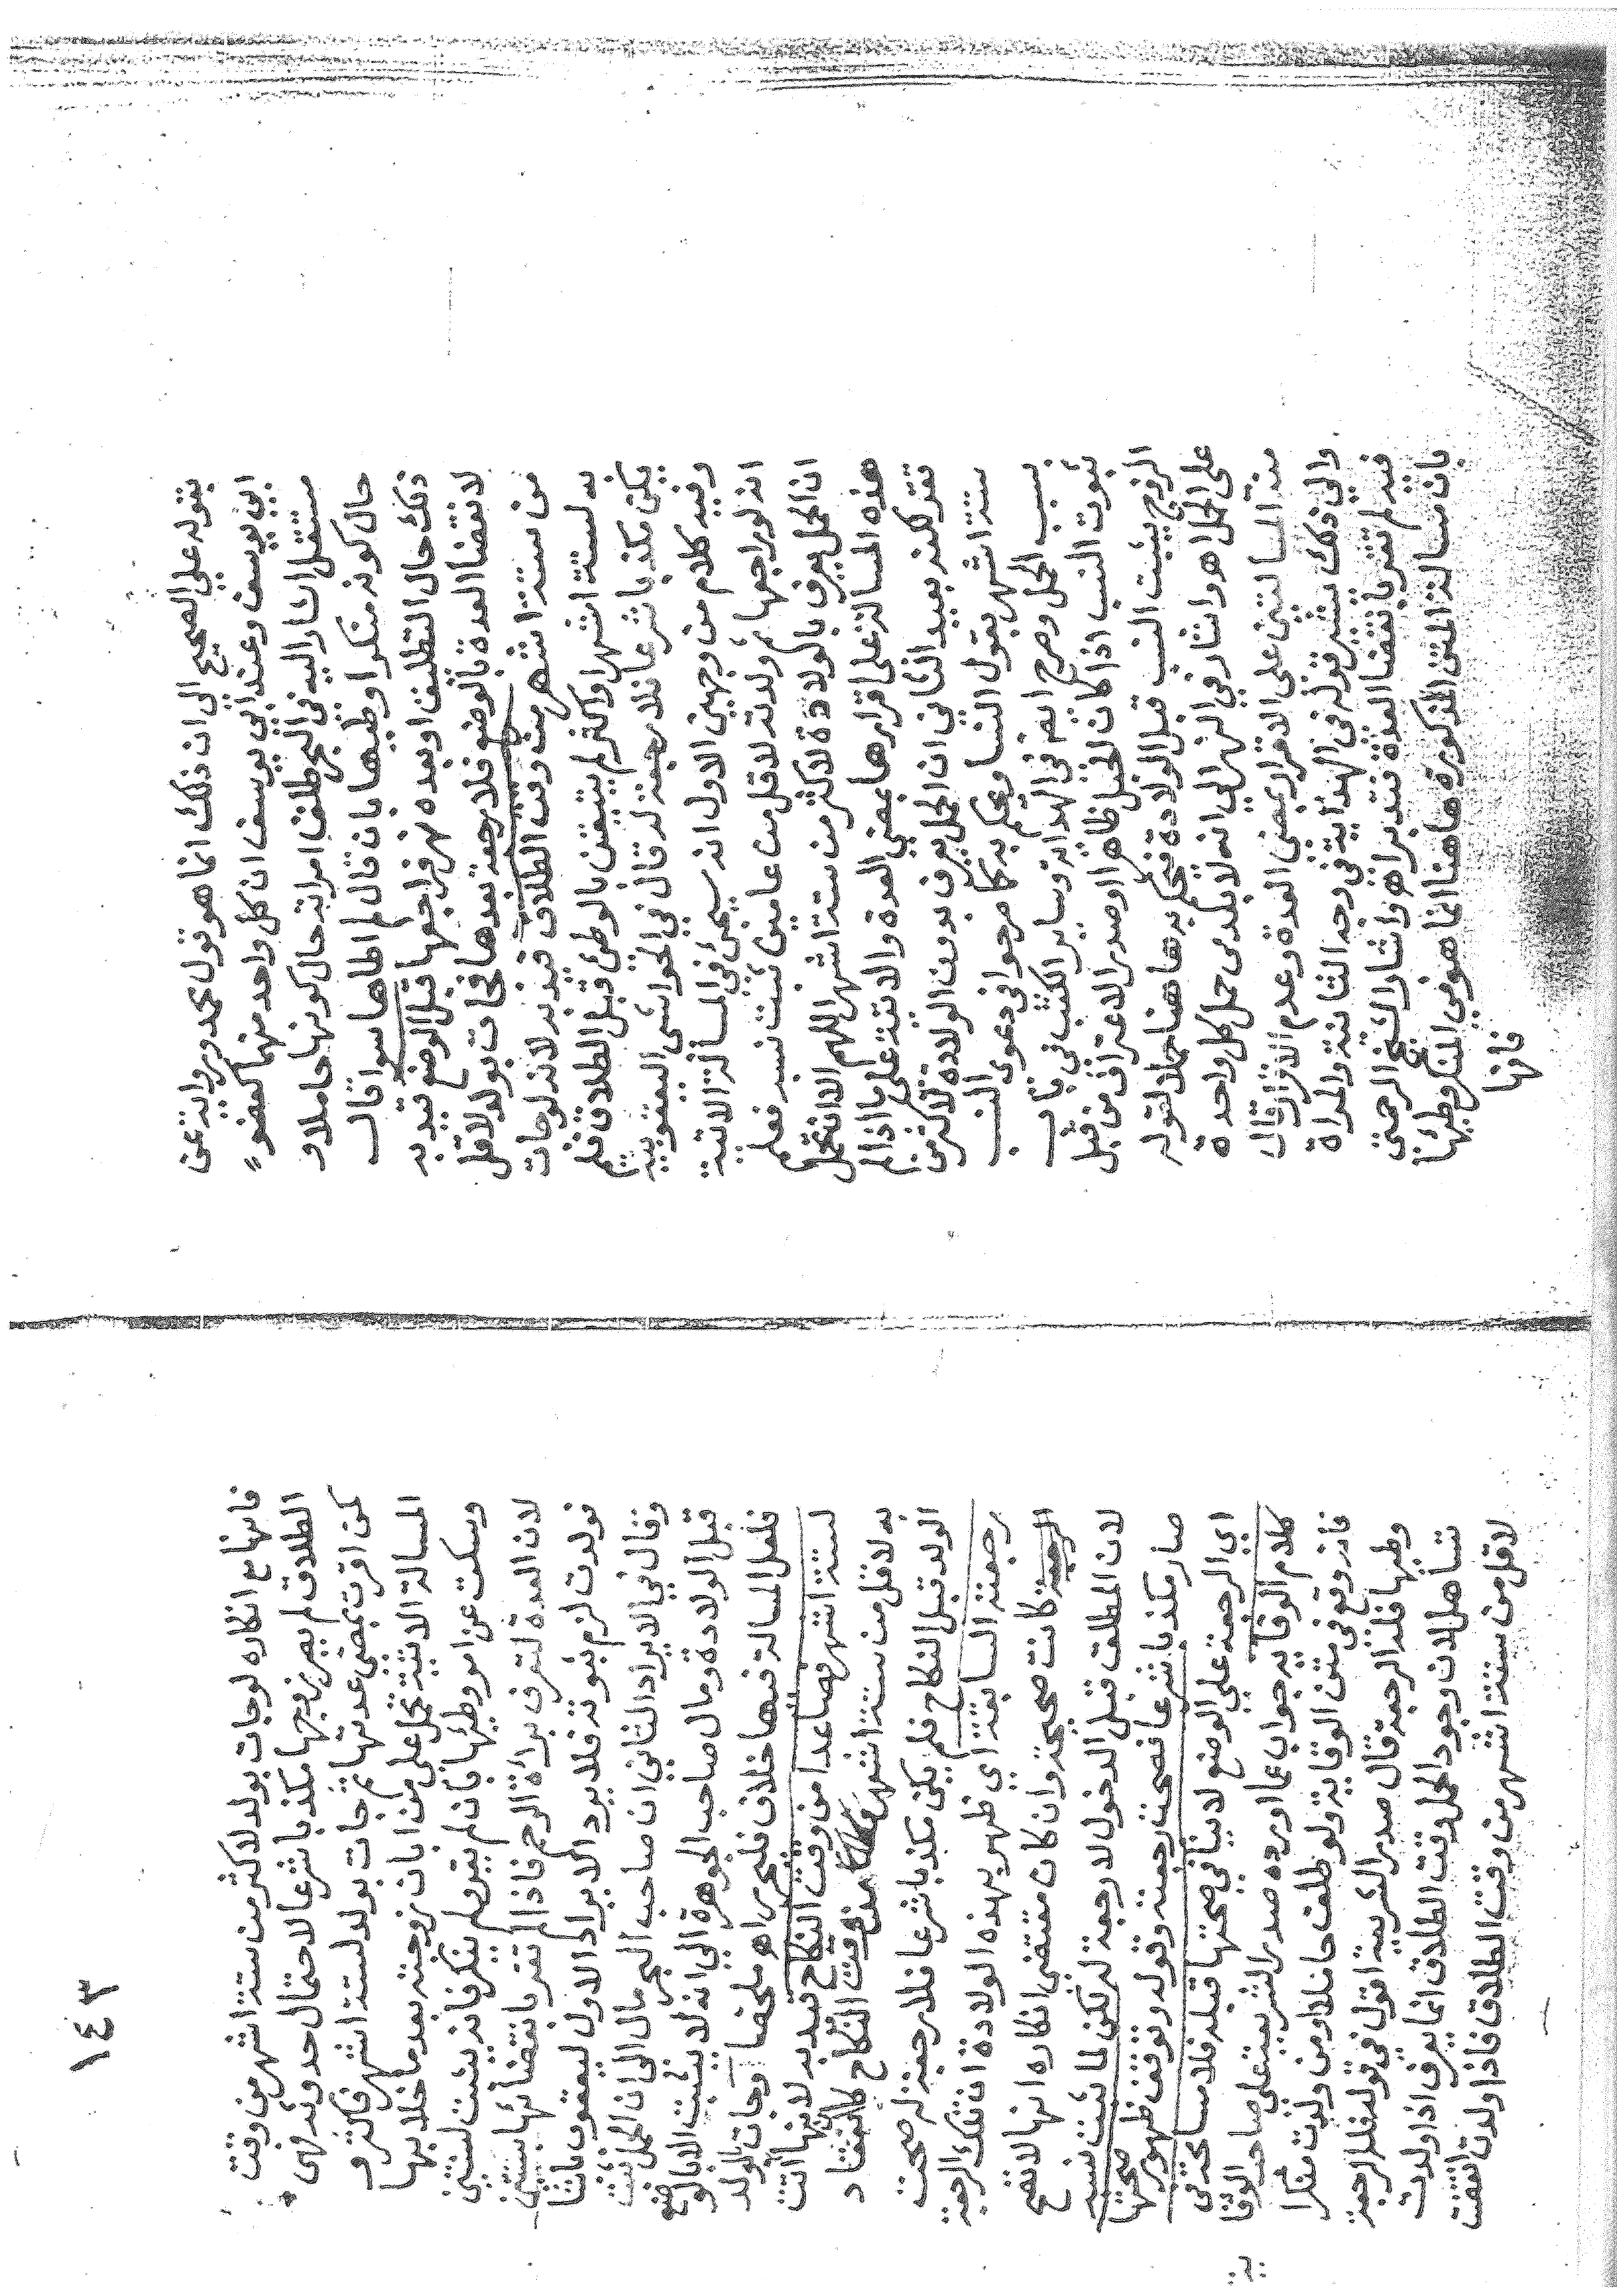 بقوله على الصحيح الى ان ذلك انما هو قول محمد ورواية عن
ابي يوسف وعند ابي يوسف ان كل واحد منهما كعضو
مستقل اشار اليه في البحر طلق امراته حال كونها حاملا و
حال كونه منكرا وطئها بان قال لم اطاها سوا قال
ذلك حال التطليق او بعده نهر فراجعها قبل الوضع قيد به
لانقضا العدة بالوضع فلا رجعة بعدها فجات بولد لاقل
من ستة اشهر من وقت الطلاق قيد به لانه لو جات
به لستة اشهر او اكثر لم يتيقن بالوطئ قبل الطلاق فلم
يكن مكذبا شرعا فلا رجعة له قال في الحواشي اليعقوبية
وفيه كلام من وجهين الاول انه سيجئ في المسالة الاتية
انه لو راجعها ثم ولدته لاقل من عامين ثبت نسبه فعلم
ان الحمل يعرف بالولادة لاكثر من ستة اشهر اللهم الا ان تحمل
هذه المسالة على اقرارها بمضي العدة والاتية على ما اذا لم
تقر لكنه بعيد الثاني ان الحمل يعرف بدون الولادة لاكثر من
ستة اشهر بقول النسا ويحكم به كما صرحوا في دعوى النسب
بسبب الحمل وصرح ايضا في الهداية وساير الكتب في باب
ثبوت النسب اذا كان الحبل ظاهرا او صدر الاعتراف من قبل
الزوج يثبت النسب قبل الولادة فيحكم به ها هنا حملا لقوله
على الحمل اهـ واشار في النهر الى انه لا بد من حمل كل واحدة
من المسالتين على الاقرار بمضي العدة وعدم الاقرار قال
والى ذلك يشير قوله في الهداية في وجه الثانية والمراة
فيه لم تقر بانقضا العدة فتدبر اهـ واشار الشيخ الرحمتي
بان مسالة المتن المذكورة ها هنا انما هو في المنكر وطئها
فانها
١٤٣
فانها مع انكاره لو جات بولد لاكثر من ستة اشهر من وقت
الطلاق لم يصر بزوجها مكذبا شرعا لاحتمال حدوثه فهي
كمن اقرت بمضي عدتها ثم جات بولد لستة اشهر فاكثر و
المسالة الاتية تحمل على من ابان زوجته بعدما خلا بها
وسكت عن امر وطئها بان لم يقر ولم ينكر فانه يثبت لسنتين
لان العدة لتعرف براة الرحم فاذا لم تقر بانقضائها
فولدت لزم ثبوته فلا يرد الايراد الاول ليعقوب باشا
وقال في الايراد الثاني ان صاحب البحر مال الى ان الحمل يثبت
قبل الولادة ومال صاحب الجوهرة الى انه لا يثبت الا بالوضع
فلعل المسالة فيها خلاف فليحرر اهـ ملخصا وجات بالولد
لستة اشهر فصاعدا من وقت النكاح قيد به لانها لو اتت
به لاقل من ستة اشهر من وقت النكاح
الولد قبل النكاح فلم يكن مكذبا شرعا فلا رجعة له صحت
رجعته السابقة اي ظهر بهذه الولادة ان تلك الرجعة
كانت صحيحة وان كان مقتضى انكاره انها لا تصح
لان المطلق قبل الدخول لا رجعة له لكن لما ثبت نسبه
صار مكذبا شرعا فصحت رجعته وقوله وتوقف ظهور صحتها
اي الرجعة على الوضع لا ينافي صحتها قبله فلا مسامحة في
كلام الوقاية جواب عما اورده صدر الشريعة على صاحب الوقاية
فانه وقع في متن الوقاية ولو طلق حاملا او من ولدت منكرا
وطئها فله الرجعة قال صدر الشريعة اقول في قوله فله الرجعة
تساهل لان وجود الحمل وقت الطلاق انما يعرف اذا ولدت
لاقل من ستة اشهر من وقت الطلاق فاذا ولدت انقضت